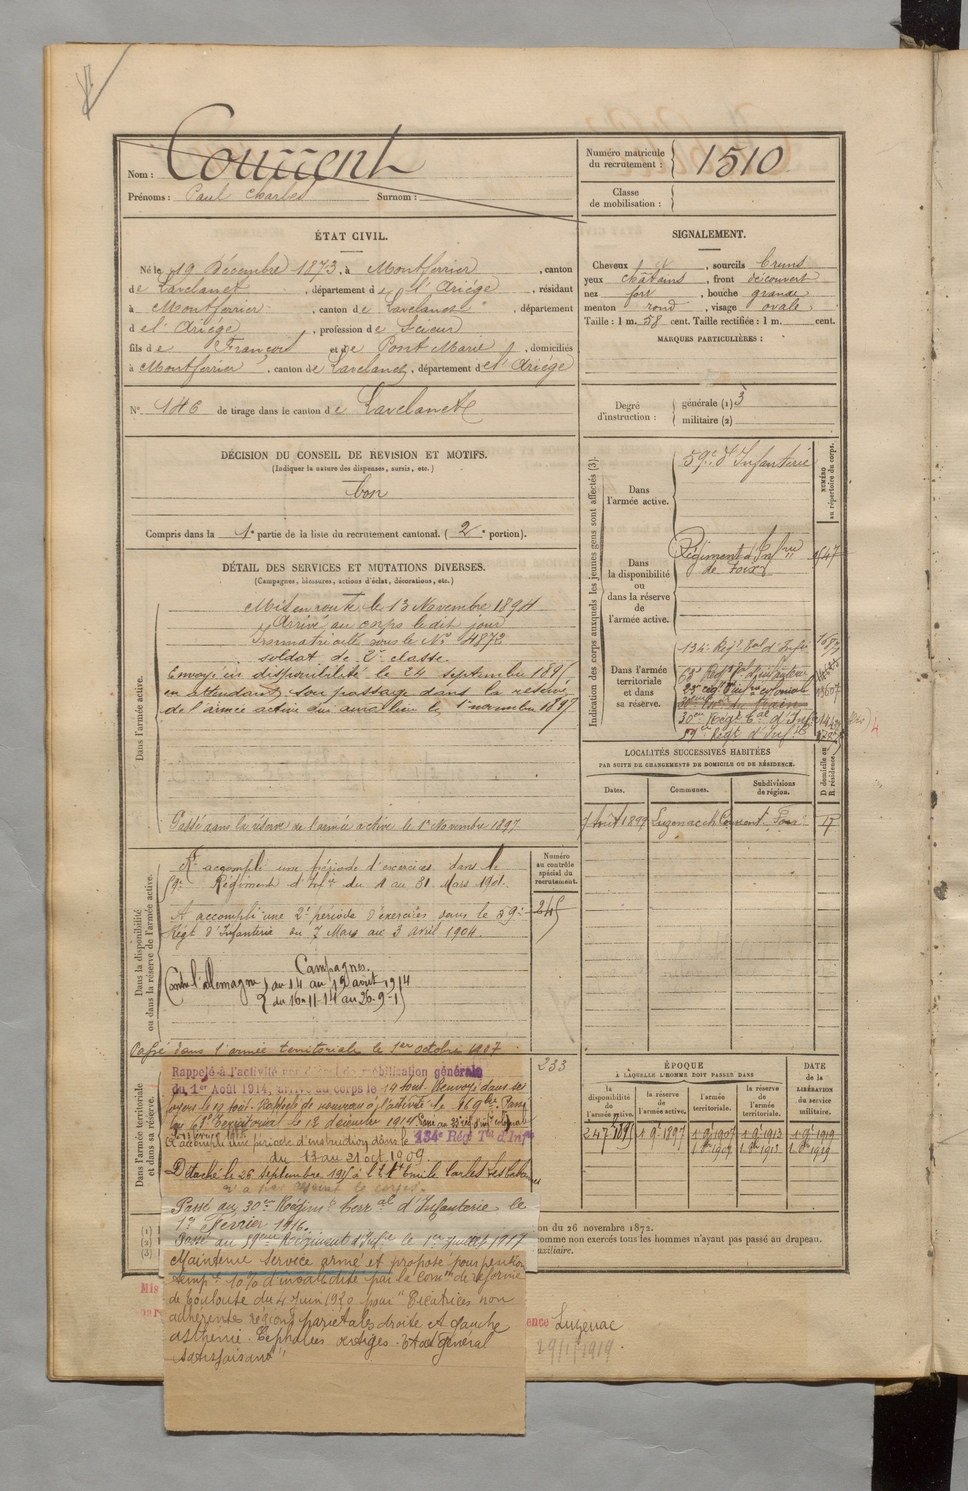 Nom : Courrent
Prénoms : Paul Charles Surnom :
Numéro matricule du recrutement : 1510
Classe de mobilisation :
ÉTAT CIVIL.
Né le 19 Décembre 1873, à Montferrier, canton
de Lavelanet, département de l'Ariége, résidant
à Montferrier, canton de Lavelanet, département
d e l'Ariége, profession de Scieur
fils de François et de Pont Marie, domiciliés
à Montferrier, canton de Lavelanet, département de l'Ariége
N° 146 de tirage dans le canton de Lavelanet
SIGNALEMENT.
Cheveux et, sourcils bruns
yeux châtains, front découvert
nez fort, bouche grande
menton rond, visage ovale
Taille : 1 m. 58 cent. Taille rectifiée : 1 m. cent.
MARQUES PARTICULIÈRES :
Degré d'instruction : générale (1) 3
militaire (2)
DÉCISION DU CONSEIL DE REVISION ET MOTIFS.
(Indiquer la nature des dispenses, sursis, etc.)
bon
Compris dans la 1e partie de la liste du recrutement cantonal. (2e portion).
DÉTAIL DES SERVICES ET MUTATIONS DIVERSES.
(Campagnes, blessures, actions d'éclat, décorations, etc.)
Dans l'armée active.
Mis en route le 13 Novembre 1894
Arrivé au corps le dit jour
Immatriculé sous le N° 4872
soldat de 2e classe.
Envoyé en disponibilité le 24 septembre 1895
en attendant son passage dans la réserve
de l'armée active qui aura lieu le 1er novembre 1897
Passé dans la réserve de l'armée active le 1er Novembre 1897
Dans la disponibilité ou dans la réserve de l'armée active.
A accompli une période d'exercices dans le
59e Régiment d'Infie du 4 au 31 Mars 1901.
A accompli une 2e période d'exercices dans le 59e
Régt d'Infanterie du 7 Mars au 3 avril 1904.
Campagnes.
Contre l'allemagne du 14 au 19 août 1914
du 16-11-14 au 26-9-15
Passé dans l'armée territoriale le 1er octobre 1907
Numéro au contrôle spécial du recrutement.
245
233
Dans l'armée territoriale et dans sa réserve.
Rappelé à l'activité par décret de mobilisation générale
du 1er Août 1914, arrivé au corps le 14 août. Renvoyé dans ses
foyers le 19 août. Rappelé de nouveau à l'activité le 16 9bre. Passé
au 63e territorial le 12 décembre 1914.
A accompli une période d'instruction dans le 134e Régt Tal d'Infie
du 13 au 21 oct 1909.
Détaché le 26 septembre 1915 à
Passé au 30e Régiment Terral d'Infanterie le
1er Février 1916.
Passé au 59eme Régiment d'Infie le 1er Juillet 1917
Maintenu service armé et proposé pour pension
temp. 10% d'invalidité par la Comon de réforme
de Toulouse du 4 Juin 1920 pour "Cicatrices non
adhérentes régions pariétales droite et gauche
asthénie. Céphalées vertiges. Etat général
satisfaisant"
Indication des corps auxquels les jeunes gens sont affectés (3).
NUMÉRO au répertoire du corps.
Dans l'armée active.
59e d'Infanterie
Dans la disponibilité ou dans la réserve de l'armée active.
Régiment d'Infrie de Foix
Dans l'armée territoriale et dans sa réserve.
134e Régt Tal d'Infie
63e Régt Tal d'Infanterie
30e Régt Tal d'Infie
59e Régt d'Infie
LOCALITÉS SUCCESSIVES HABITÉES
PAR SUITE DE CHANGEMENTS DE DOMICILE OU DE RÉSIDENCE.
Dates. Communes. Subdivisions de région. D domicile ou R résidence.
Août 1899 Luzenac Foix
ÉPOQUE
À LAQUELLE L'HOMME DOIT PASSER DANS
la disponibilité de l'armée active.
la réserve de l'armée active.
l'armée territoriale.
la réserve de l'armée territoriale.
DATE de la LIBÉRATION du service militaire.
24 7bre 1895 1 9bre 1897 1 9bre 1907 1 9bre 1913 1 9bre 1919
1. 8bre 1907 1. 8bre 1913 1. 8bre 1919
(1)
(2)
(3)
on du 26 novembre 1872.
comme non exercés tous les hommes n'ayant pas passé au drapeau.
uxiliaire.
Mis
ence Luzenac
29/1/1919